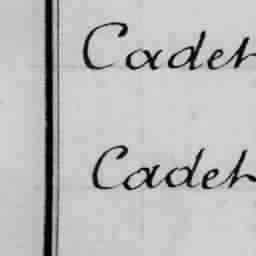 Cadet
Cadet